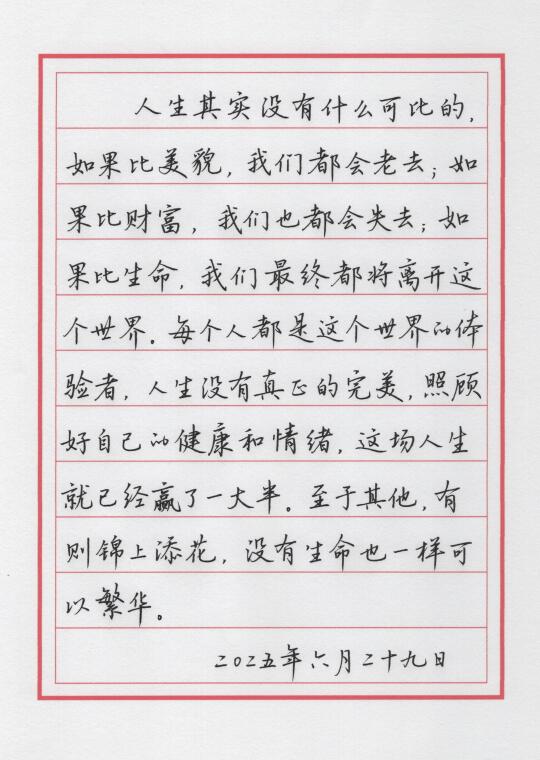 人生其实没有什么可比的，
如果比美貌，我们都会老去；如
果比财富，我们也都会失去；如
果比生命，我们最终都将离开这
个世界。每个人都是这个世界的体
验者，人生没有真正的完美，照顾
好自己的健康和情绪，这场人生
就已经赢了一大半。至于其他，有
则锦上添花，没有生命也一样可
以繁华。
二〇二五年六月二十九日